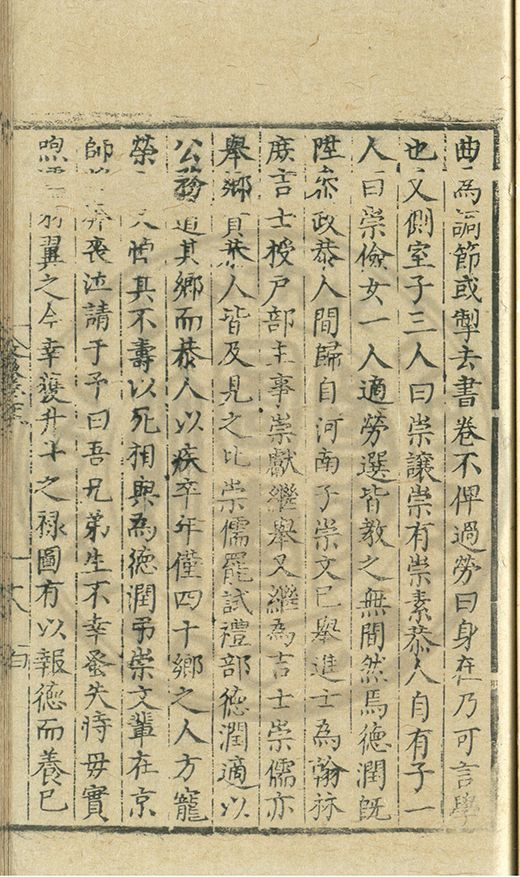 曲為調節或掣去書卷不俾過勞曰身在乃可言學
也又側室子三人曰崇讓崇有崇素恭人自有子一
人曰崇儉女一人適勞選皆教之無間然焉德潤既
陞叅政恭人間歸自河南子崇文已舉進士為翰林
庶吉士授戶部主事崇獻繼舉又繼為吉士崇儒亦
舉鄉貢恭人皆及見之比崇儒罷試禮部德潤適以
公務道其鄉而恭人以疾卒年僅四十鄉之人方寵
榮人惜其不壽以死相與為德潤弔崇文輩在京
師奔喪泣請于予曰吾兄弟生不幸蚤失恃毋實
喣翼之今幸襲升斗之祿圖有以報德而養已